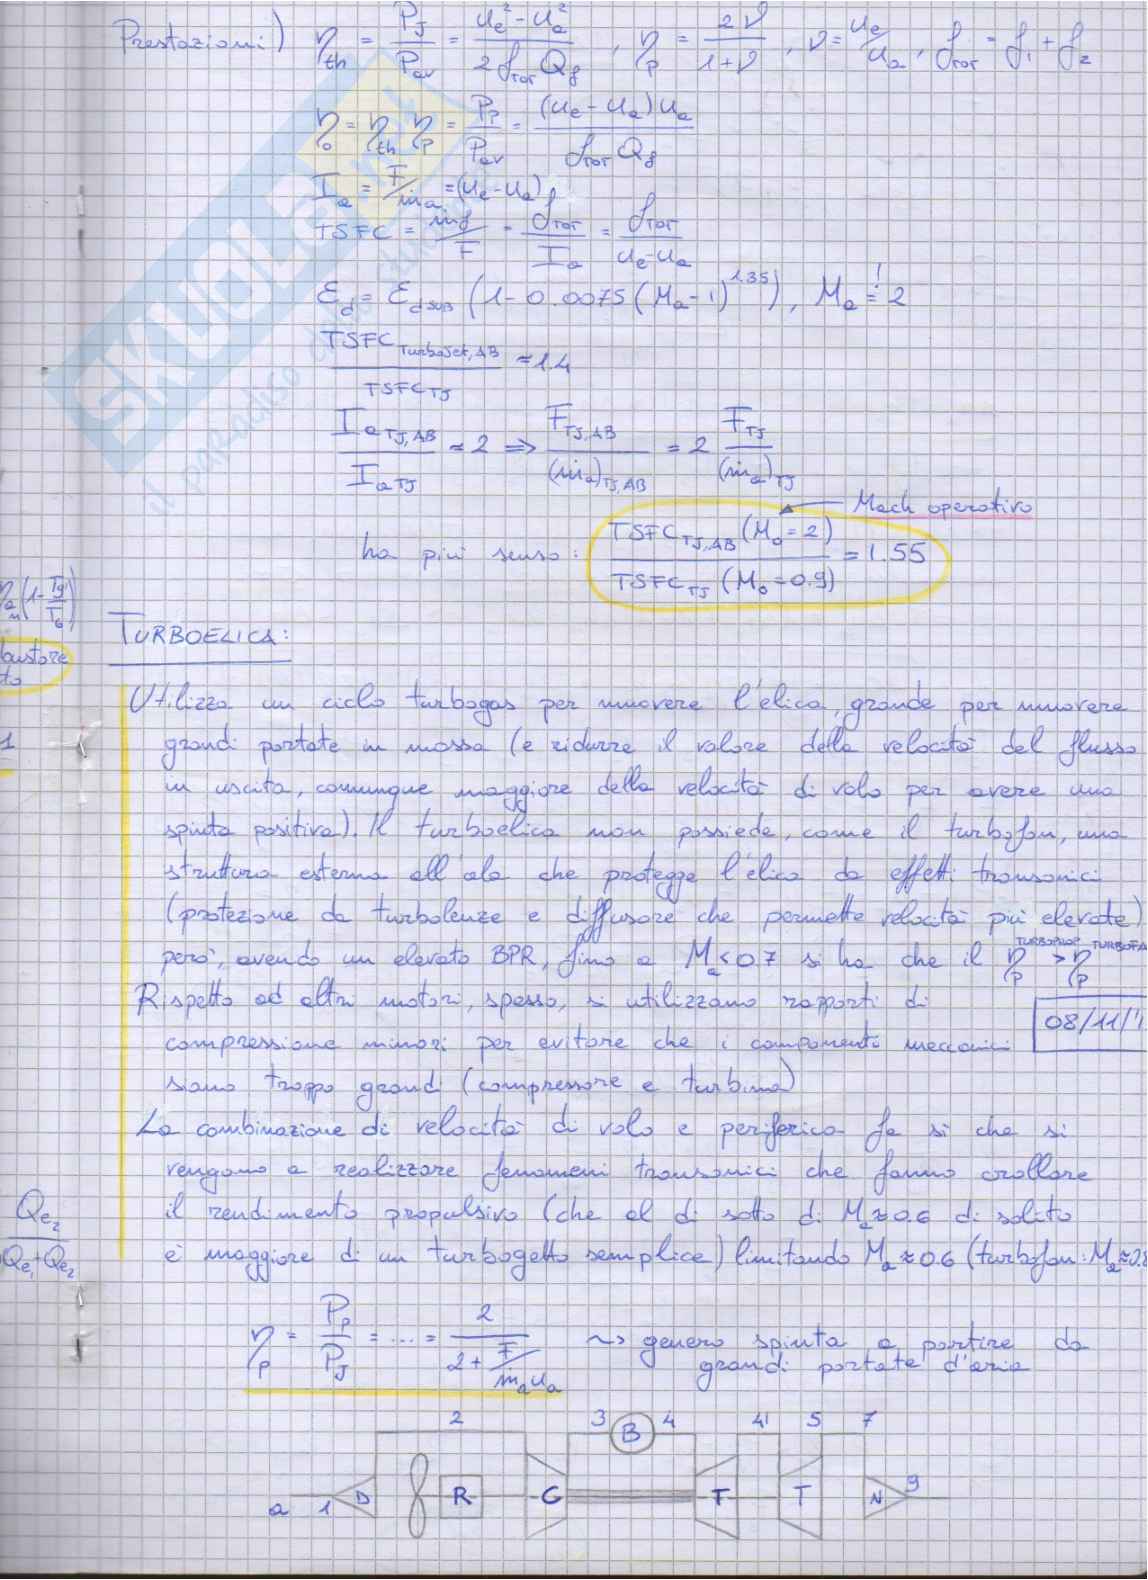 Prestazioni) η_th = P_J / P_av = (u_e² - u_a²) / (2 f_TOT Q_f) , η_p = 2ν / (1+ν) , ν = u_e / u_a , f_TOT = f_1 + f_2
η_o = η_th η_p = P_P / P_av = (u_e - u_a) u_a / (f_TOT Q_f)
I_a = F / ṁ_a = (u_e - u_a)
TSFC = ṁ_f / F = f_TOT / I_a = f_TOT / (u_e - u_a)
ε_d = ε_d SUB (1 - 0.0075 (M_a - 1)^1.35) , M_a =! 2
TSFC_TurboJet,AB / TSFC_TJ ≈ 1.4
I_a TJ,AB / I_a TJ ≈ 2 ⇒ F_TJ,AB / (ṁ_a)_TJ,AB = 2 F_TJ / (ṁ_a)_TJ
Mach operativo
ha più senso: TSFC_TJ,AB (M_0 = 2) / TSFC_TJ (M_0 = 0.9) = 1.55
bustore
to
1
TURBOELICA:
Utilizza un ciclo turbogas per muovere l'elica, grande per muovere
grandi portate in massa (e ridurre il valore della velocità del flusso
in uscita, comunque maggiore della velocità di volo per avere una
spinta positiva). Il turboelica non possiede, come il turbofan, una
struttura esterna all'ala che protegge l'elica da effetti transonici
(protezione da turbolenze e diffusore che permette velocità più elevate)
però, avendo un elevato BPR, fino a M_a < 0.7 si ha che il η_p TURBOPROP > η_p TURBOFA
Rispetto ad altri motori, spesso, si utilizzano rapporti di
08/11/1
compressione minori per evitare che i componenti meccanici
siano troppo grandi (compressore e turbina)
La combinazione di velocità di volo e periferica fa sì che si
vengano a realizzare fenomeni transonici che fanno crollare
il rendimento propulsivo (che al di sotto di M_a ≈ 0.6 di solito
è maggiore di un turbogetto semplice) limitando M_a ≈ 0.6 (turbofan: M_a ≈ 0.8
Q_e2
Q_e1 + Q_e2
η_p = P_P / P_J = .... = 2 / (2 + F / (ṁ_a u_a)) ~> genero spinta a partire da
grandi portate d'aria
2 3 B 4 4' 5 7
a 1 D R C T T N 9
SKUOLA.net
il paradiso dello studente